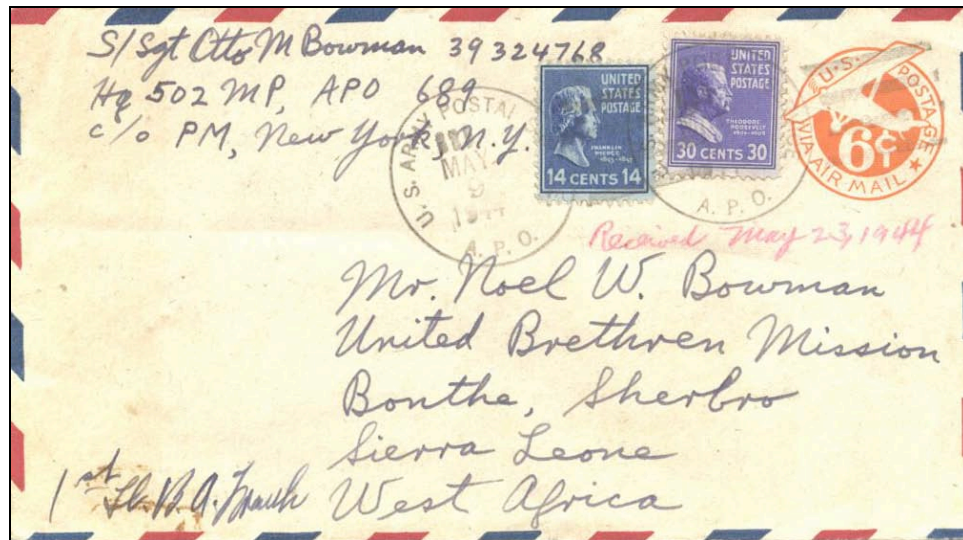 S/Sgt Otto M Bowman 39324768
Hq 502 MP, APO 689
c/o PM, New York, N.Y.
U.S. ARMY POSTAL
MAY
9
1944
A.P.O.
UNITED
STATES
POSTAGE
FRANKLIN
PIERCE
14 CENTS 14
UNITED
STATES
POSTAGE
THEODORE
ROOSEVELT
30 CENTS 30
A.P.O.
U.S. POSTAGE
6¢
VIA AIR MAIL
Received May 23, 1944
Mr. Noel W. Bowman
United Brethren Mission
Bonthe, Sherbro
Sierra Leone
West Africa
1st Lt. B.A.